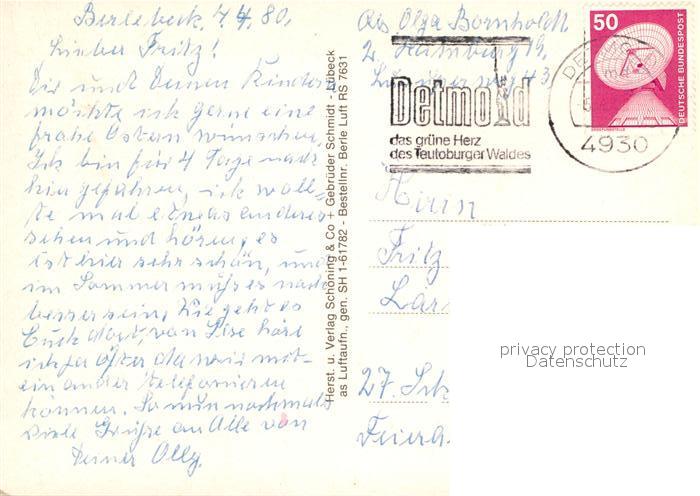 Berlebeck, 4.4.80.
Lieber Fritz!
Dir und Deinen Kindern
möchte ich gerne eine
frohe Ostern wünschen.
Ich bin für 4 Tage nach
hier gefahren, ich woll-
te mal etwas anderes
sehen und hören, es
ist hier sehr schön, und
im Sommer muß es noch
besser sein, Wie geht es
Euch dort, von Lise höre
ich ja öfter da wir mit-
ein ander telefonieren
können. So nun nochmals
viele Grüße an Alle von
Deiner Olly.
Herst. u. Verlag Schöning & Co + Gebrüder Schmidt - Lübeck
as Luftaufn., gen. SH 1-61782 - Bestellnr. Berle Luft RS 7631
Abs Olga Bornholdt
2 Hamburg 19,
3
Detmold
das grüne Herz
des Teutoburger Waldes
50
DEUTSCHE BUNDESPOST
DETMOLD
4930
Herrn
Fritz
Lar
27.
Feiera
privacy protection
Datenschutz